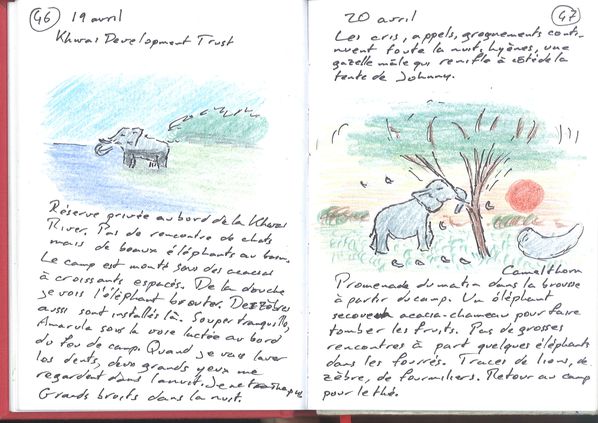 46
19 avril
Khwai Development Trust
Réserve privée au bord de la Khwai
River. Pas de rencontre de chats
mais de beaux éléphants au bain.
Le camp est monté sous des acacias
à croissants espacés. De la douche
je vois l'éléphant brouter. Des zèbres
aussi sont installés là. Souper tranquille,
Amarula sous la voie lactée au bord
du feu de camp. Quand je vais laver
les dents, deux grands yeux me
regardent dans la nuit. Je ne
Grands bruits dans la nuit.
47
20 avril
Les cris, appels, grognements conti-
nuent toute la nuit, hyènes, une
gazelle mâle qui renifle à côté de la
tente de Johnny.
Camelthorn
Promenade du matin dans la brousse
à partir du camp. Un éléphant
secoue acacia-chameau pour faire
tomber les fruits. Pas de grosses
rencontres à part quelques éléphants
dans les fourrés. Traces de lions, de
zèbre, de fourmiliers. Retour au camp
pour le thé.